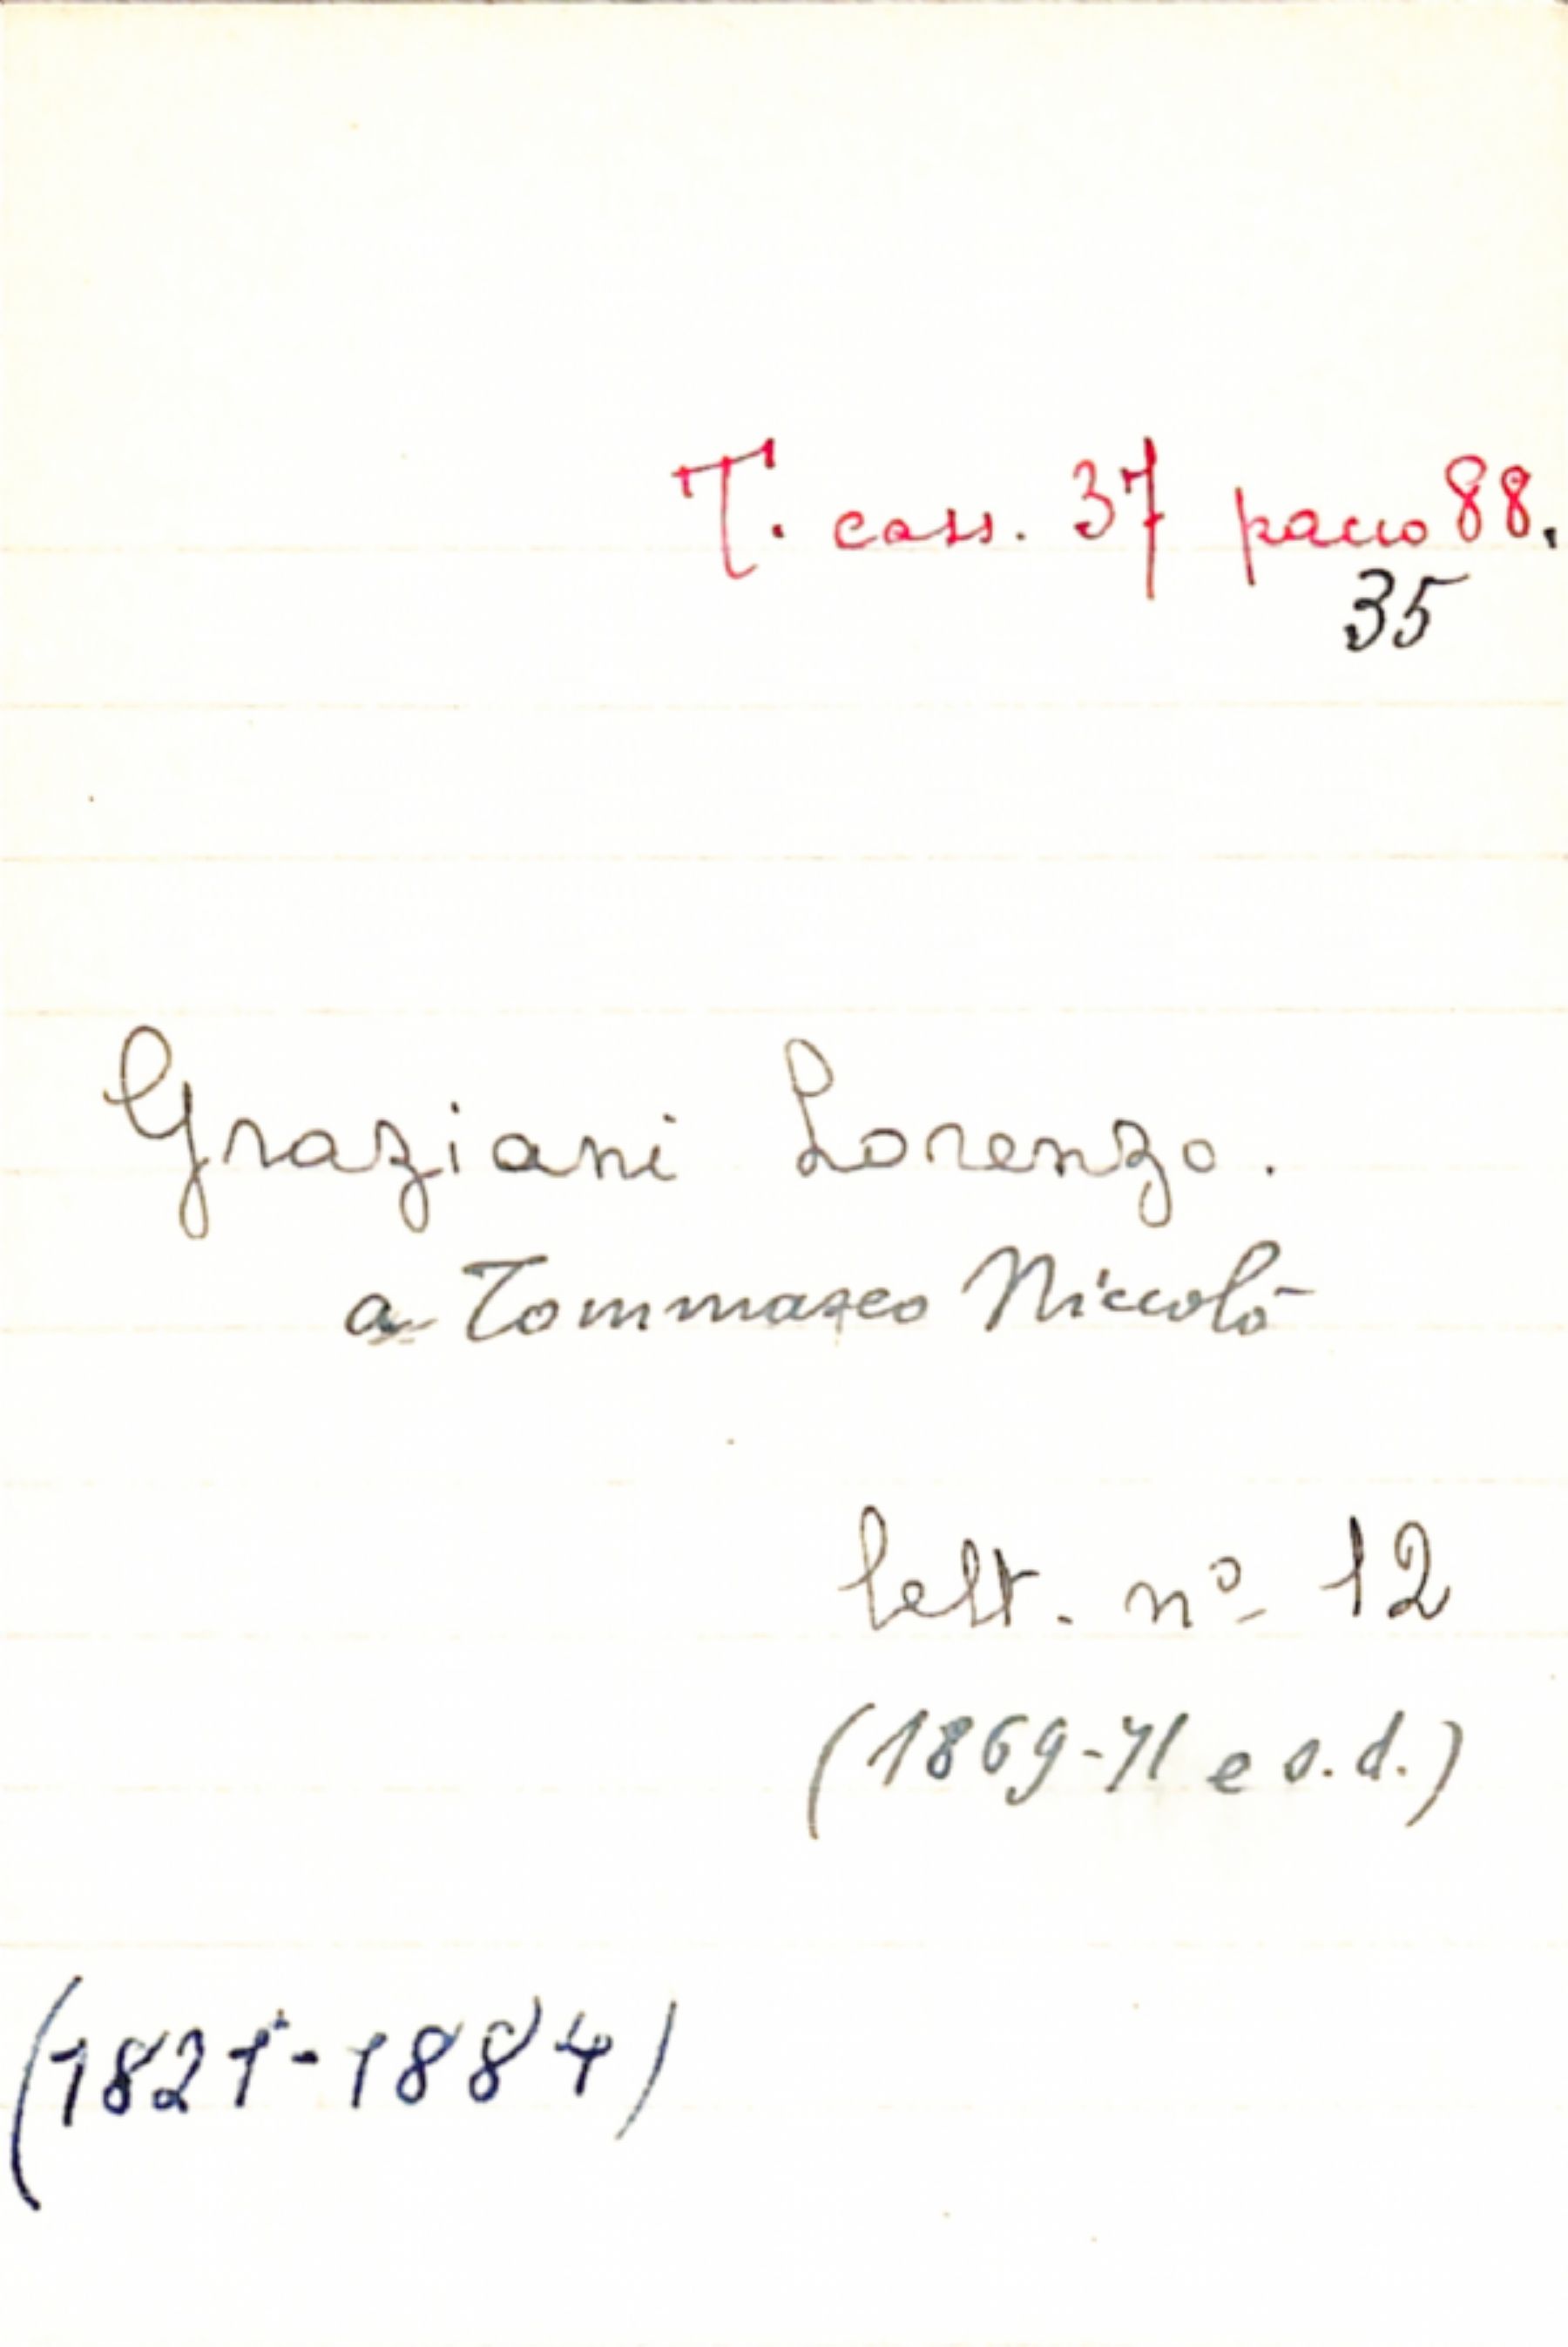 T. cass. 37 pacco 88.
35
Graziani Lorenzo.
a Tommaseo Niccolò
lett. nº 12
(1869-71 e s.d.)
(1821-1884)